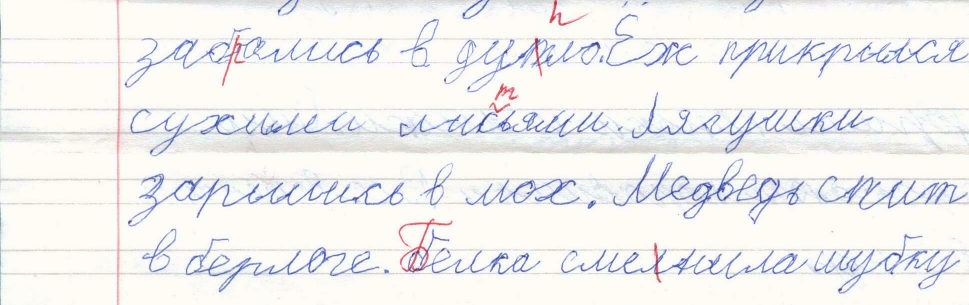 забрались в дупло. Ёж прикрылся
сухими листьями. Лягушки
зарылись в мох. Медведь спит
в берлоге. Белка сменила шубку